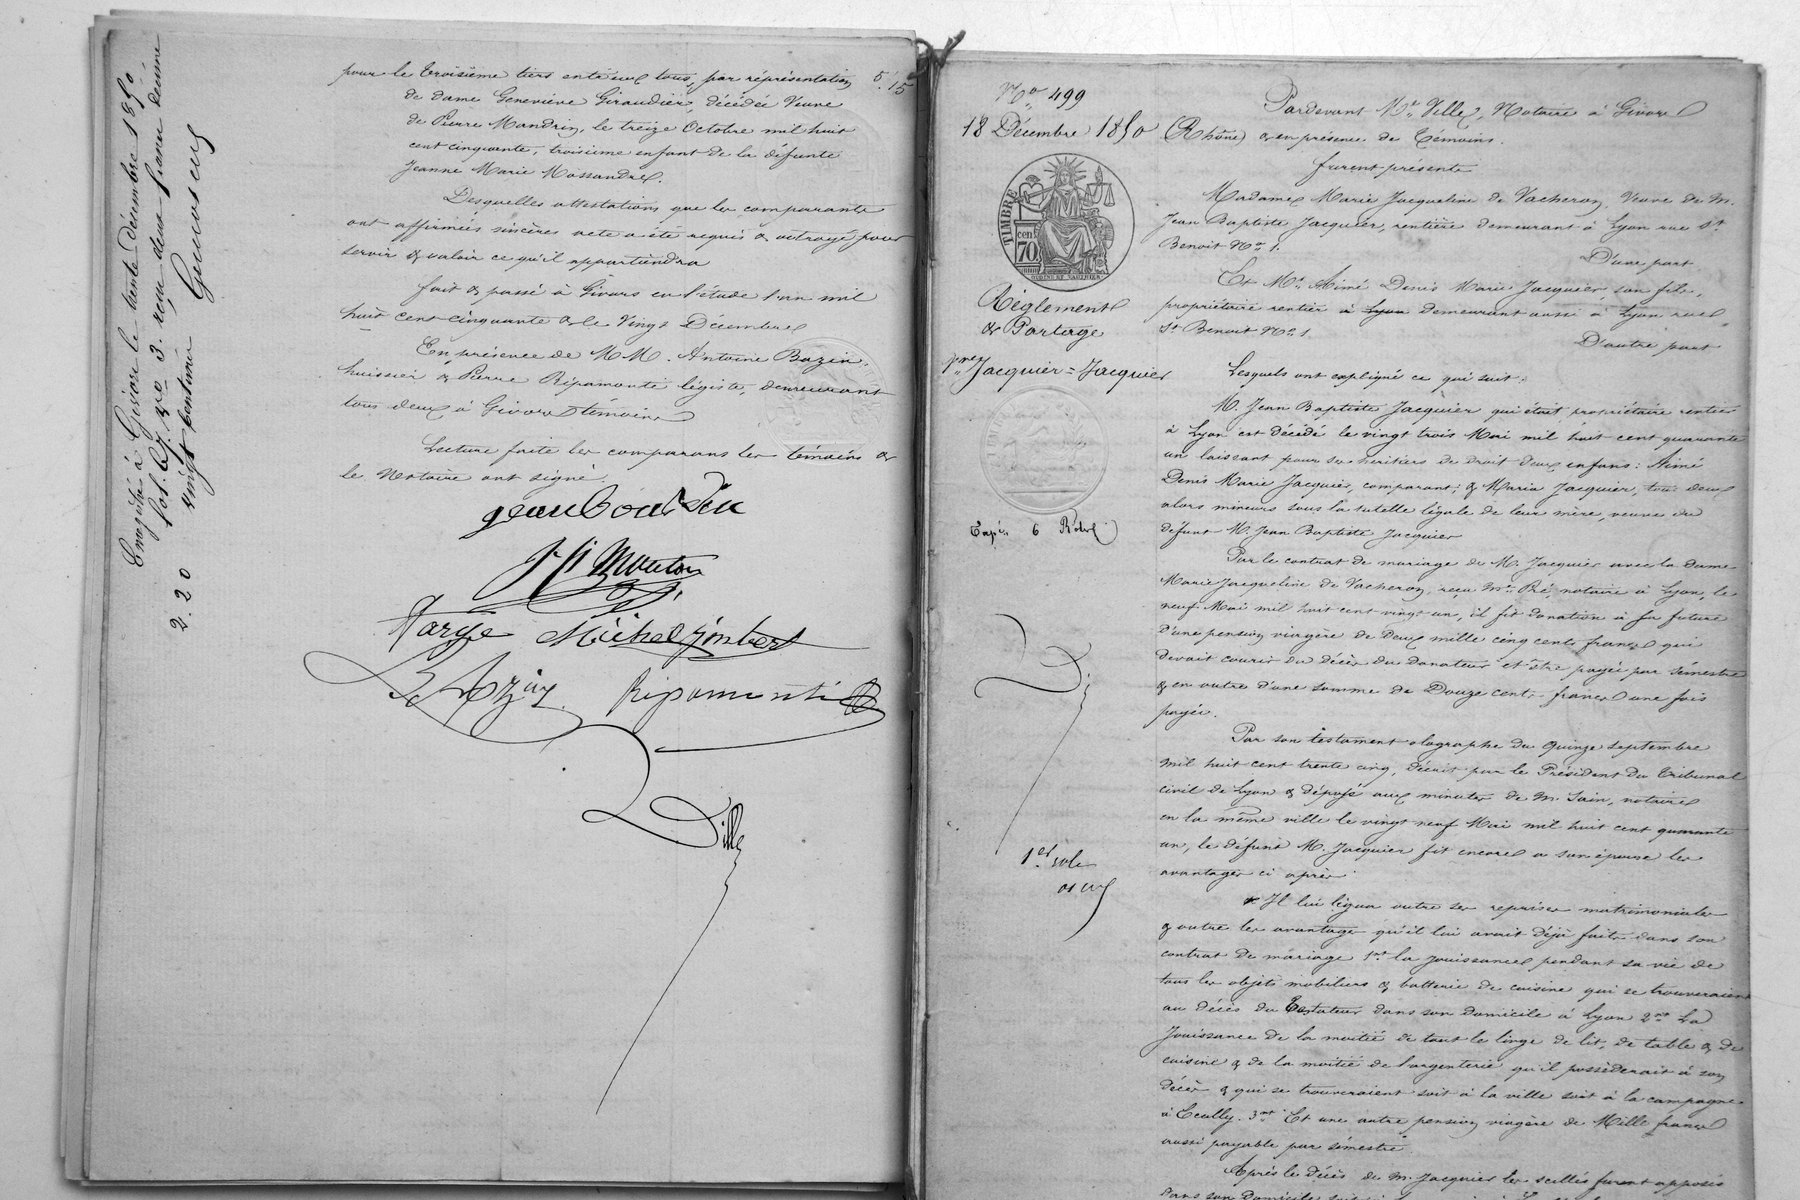 Enregistré à Givors le trente décembre 1850
fol. 67. r.o 3. reçu deux francs deux
2. 20 vingt centimes
pour le troisième tiers entr'eux tous, par réprésentation
5. 15
de dame Geneviève Giraudier, décédée Veuve
de Pierre Mandrin, le treize Octobre mil huit
cent cinquante, troisième enfant de la défunte
Jeanne Marie Massandre.
Desquelles attestations que les comparants
ont affirmées sincères acte a été requis & octroyé pour
servir & valoir ce qu'il appartiendra
fait & passé à Givors en l'étude l'an mil
huit cent cinquante & le Vingt Décembre
En présence de MM. Antoine Bazin,
huissier & Pierre Ripamonte légiste, demeurant
tous deux à Givors témoins
Lecture faite les comparans les témoins &
le Notaire ont signé.
Mouton
Farge Michel Jombert
Bazin Ripamonti
Ville
No 499
18 Décembre 1850
TIMBRE
cen
70
Réglement
& Partage
Jacquier = Jacquier
Expé 6 Roles
1er role
Pardevant Me Ville, Notaire à Givors
(Rhône) & en présence de Témoins.
furent présents
Madame Marie Jacqueline de Vacheron, Veuve de M.
Jean Baptiste Jacquier, rentière demeurant à Lyon rue St
Benoit No 1.
D'une part
Et Mr Aimé Denis Marie Jacquier, son fils,
propriétaire rentier à Lyon demeurant aussi à Lyon rue
St Benoit No 1
D'autre part
Lesquels ont expliqué ce qui suit:
M. Jean Baptiste Jacquier qui était propriétaire rentier
à Lyon est décédé le vingt trois Mai mil huit cent quarante
un laissant pour ses héritiers de droit deux enfans: Aimé
Denis Marie Jacquier, comparant; & Maria Jacquier, tous deux
alors mineurs sous la tutelle légale de leur mère, veuve du
défunt M. Jean Baptiste Jacquier
Par le contrat de mariage de M. Jacquier avec la dame
Marie Jacqueline de Vacheron, reçu Me Pré, notaire à Lyon, le
neuf Mai mil huit cent vingt un, il fit donation à sa future
d'une pension viagère de deux mille cinq cents francs qui
devait courir du décès du donateur et être payée par sémestre
& en outre d'une somme de Douze cents francs une fois
payée.
Par son testament olographe du quinze septembre
mil huit cent trente cinq, décrit par le Président du tribunal
civil de Lyon & déposé aux minutes de Me Sain, notaire
en la même ville le vingt neuf Mai mil huit cent quarante
un, le défunt M. Jacquier fit encore a son épouse les
avantages ci après
Il lui légua outre ses reprises matrimoniales
& outre les avantages qu'il lui avait déjà faits dans son
contrat de mariage 1nt la jouissance pendant sa vie de
tous les objets mobiliers & batterie de cuisine qui se trouveraient
au décès du Testateur dans son domicile à Lyon 2nt La
Jouissance de la moitié de tout le linge de lit, de table & de
cuisine & de la moitié de l'argenterie qu'il possèderait à son
décès & qui se trouveraient soit à la ville soit à la campagne
à Ecully. 3nt Et une autre pension viagère de Mille francs
aussi payable par sémestre
Après le décès de M. Jacquier les scellés furent apposés
dans son domicile